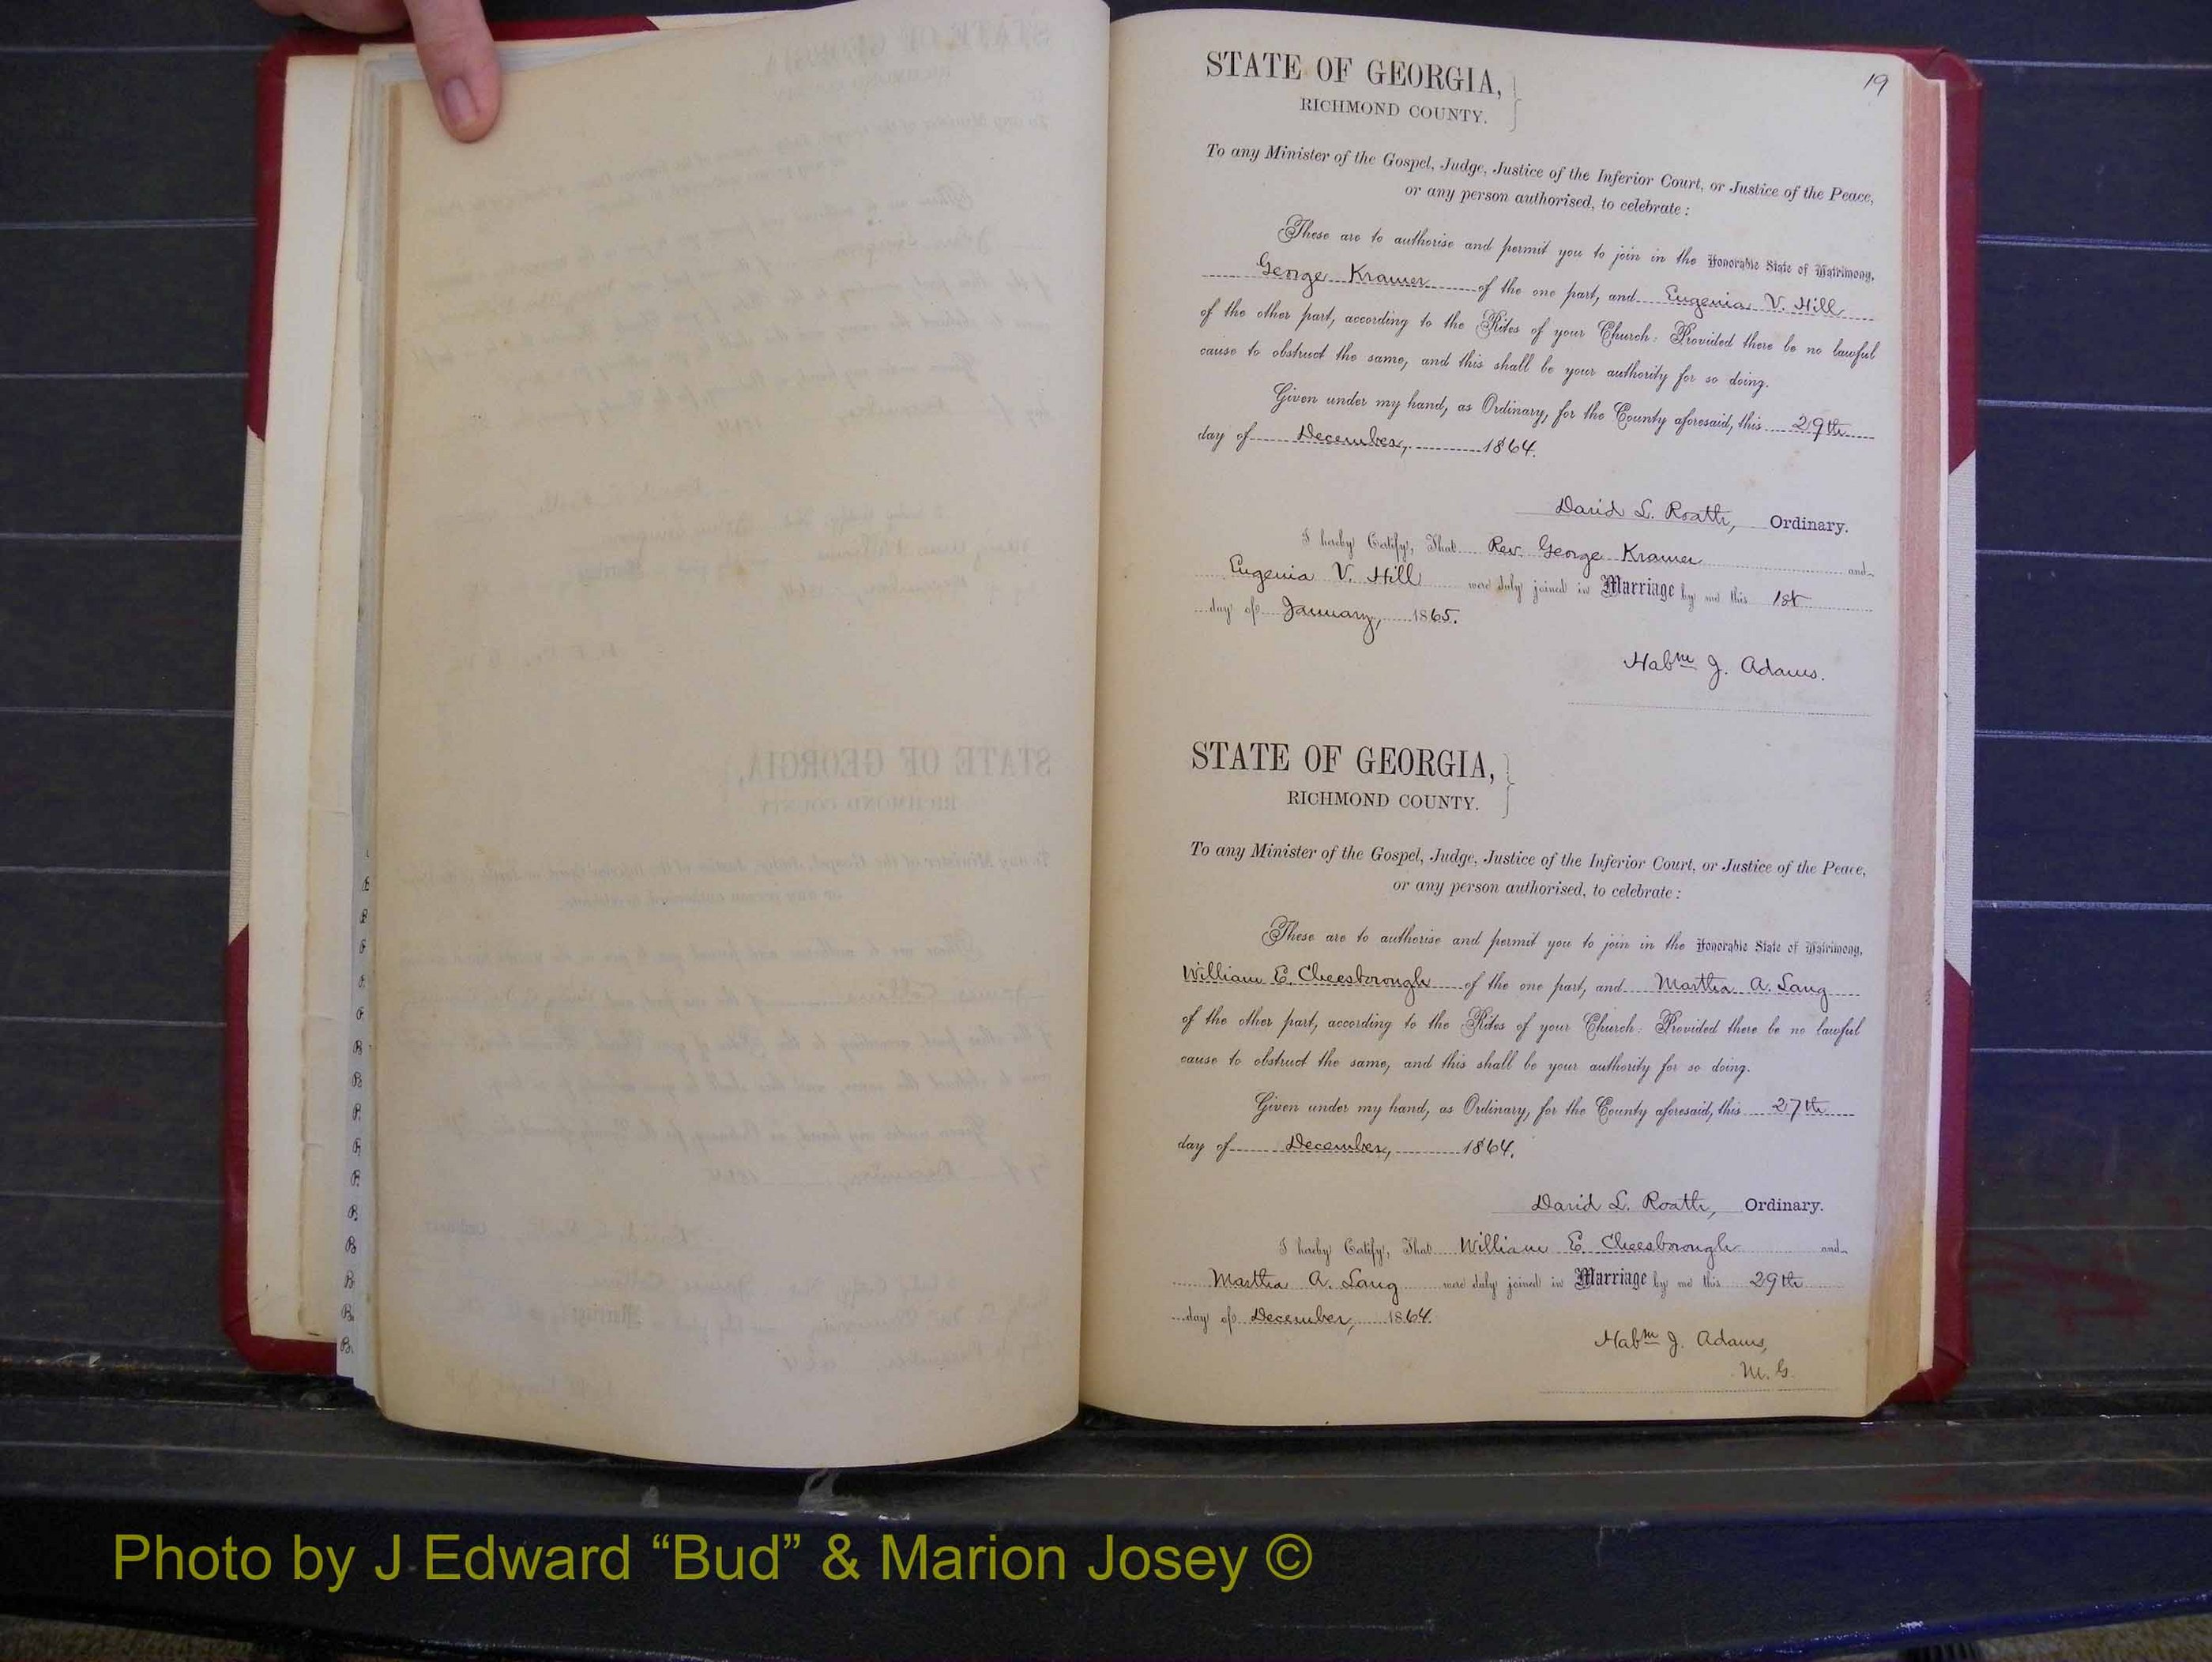 19
STATE OF GEORGIA,
RICHMOND COUNTY.
To any Minister of the Gospel, Judge, Justice of the Inferior Court, or Justice of the Peace,
or any person authorised, to celebrate:
These are to authorise and permit you to join in the Honorable State of Matrimony,
George Kramer of the one part, and Eugenia V. Hill
of the other part, according to the Rites of your Church: Provided there be no lawful
cause to obstruct the same, and this shall be your authority for so doing.
Given under my hand, as Ordinary, for the County aforesaid, this 29th
day of December, 1864.
David L. Roath, Ordinary.
I hereby Certify, That Rev. George Kramer and
Eugenia V. Hill were duly joined in Marriage by me this 1st
day of January, 1865.
Habm J. Adams.
STATE OF GEORGIA,
RICHMOND COUNTY.
To any Minister of the Gospel, Judge, Justice of the Inferior Court, or Justice of the Peace,
or any person authorised, to celebrate:
These are to authorise and permit you to join in the Honorable State of Matrimony,
William E. Cheesborough of the one part, and Martha A. Lang
of the other part, according to the Rites of your Church: Provided there be no lawful
cause to obstruct the same, and this shall be your authority for so doing.
Given under my hand, as Ordinary, for the County aforesaid, this 27th
day of December, 1864.
David L. Roath, Ordinary.
I hereby Certify, That William E. Cheesborough and
Martha A. Lang were duly joined in Marriage by me this 29th
day of December, 1864.
Habm J. Adams,
M. G.
Photo by J Edward “Bud” & Marion Josey ©